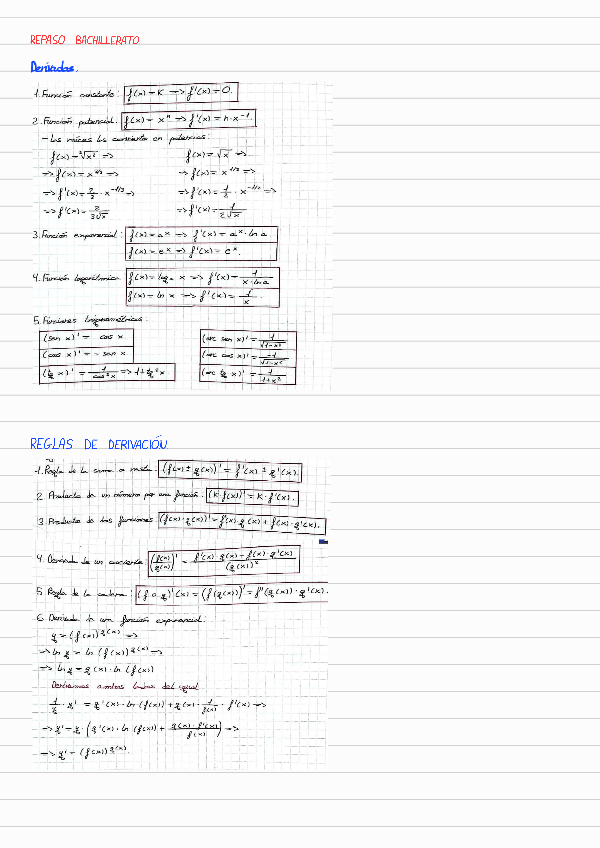 REPASO BACHILLERATO
Derivadas.
1. Función constante: f(x) = K => f'(x) = 0.
2. Función potencial: f(x) = xⁿ => f'(x) = n·x⁻¹.
- Las raíces las convierto en potencias:
f(x) = ³√x² => f(x) = √x =>
=> f(x) = x^2/3 => => f(x) = x^1/2 =>
=> f'(x) = 2/3 · x^-1/3 => => f'(x) = 1/2 · x^-1/2 =>
=> f'(x) = 2/3√x => f'(x) = 1/2√x
3. Función exponencial: f(x) = aˣ => f'(x) = aˣ · ln a
f(x) = eˣ => f'(x) = eˣ.
4. Función logarítmica: f(x) = logₐ x => f'(x) = 1/x·ln a
f(x) = ln x => f'(x) = 1/x.
5. Funciones trigonométricas:
(sen x)' = cos x (arc sen x)' = 1/√1-x²
(cos x)' = - sen x (arc cos x)' = -1/√1-x²
(tg x)' = 1/cos²x => 1+tg²x (arc tg x)' = 1/1+x²
REGLAS DE DERIVACIÓN
1. Regla de la suma o resta: (f(x) ± g(x))' = f'(x) ± g'(x).
2. Producto de un número por una función: (K·f(x))' = K·f'(x).
3. Producto de dos funciones: (f(x)·g(x))' = f'(x)·g(x) + f(x)·g'(x).
4. Derivada de un cociente: (f(x)/g(x))' = f'(x)·g(x) - f(x)·g'(x)/(g(x))²
5. Regla de la cadena: (f o g)'(x) = (f(g(x))' = f'(g(x))·g'(x).
6. Derivada de una función exponencial:
y = (f(x))^g(x) =>
=> ln y = ln (f(x))^g(x) =>
=> ln y = g(x) · ln (f(x))
Derivamos a ambos lados del igual
1/y · y' = g'(x) · ln (f(x)) + g(x) · 1/f(x) · f'(x) =>
=> y' = y · (g'(x) · ln (f(x)) + g(x)·f'(x)/f(x)) =>
=> y' = (f(x))^g(x).